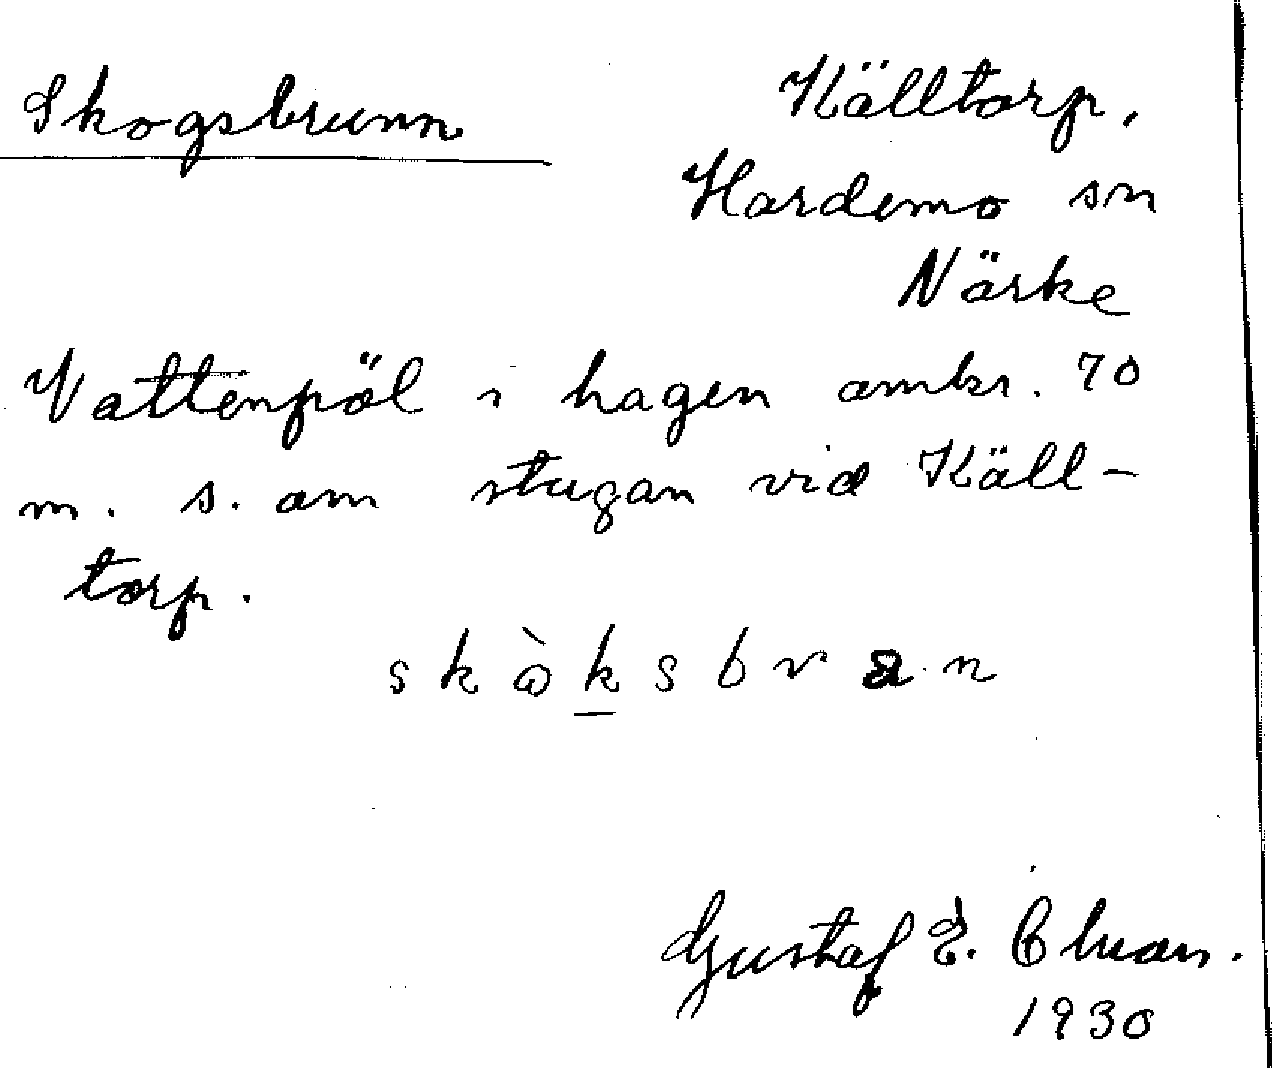 Skogsbrunn
Källtorp,
Hardemo sn
Närke
Vattenpöl i hagen omkr. 70
m. s. om stugan vid Käll-
torp.
Gustaf E.
1930